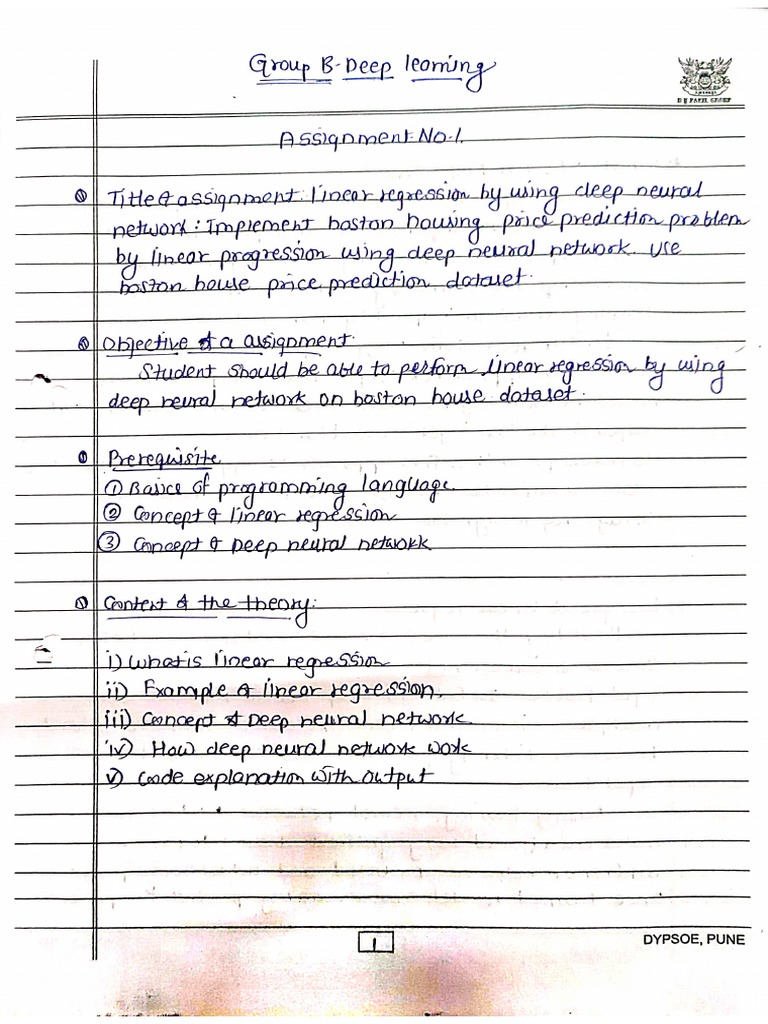 Group B-Deep learning
D Y PATIL GROUP
Assignment No.1.
Title of assignment: linear regression by using deep neural
network: Implement boston housing price prediction problem
by linear progression using deep neural network. Use
boston house price prediction dataset.
Objective of a assignment.
Student should be able to perform linear regression by using
deep neural network on boston house dataset.
Prerequisite
① Basics of programming language.
② Concept of linear regression
③ Concept of Deep neural network
Context of the theory:
i) What is linear regression
ii) Example of linear regression.
iii) Concept of Deep neural network
iv) How deep neural network work
v) Code explanation with output
1
DYPSOE, PUNE